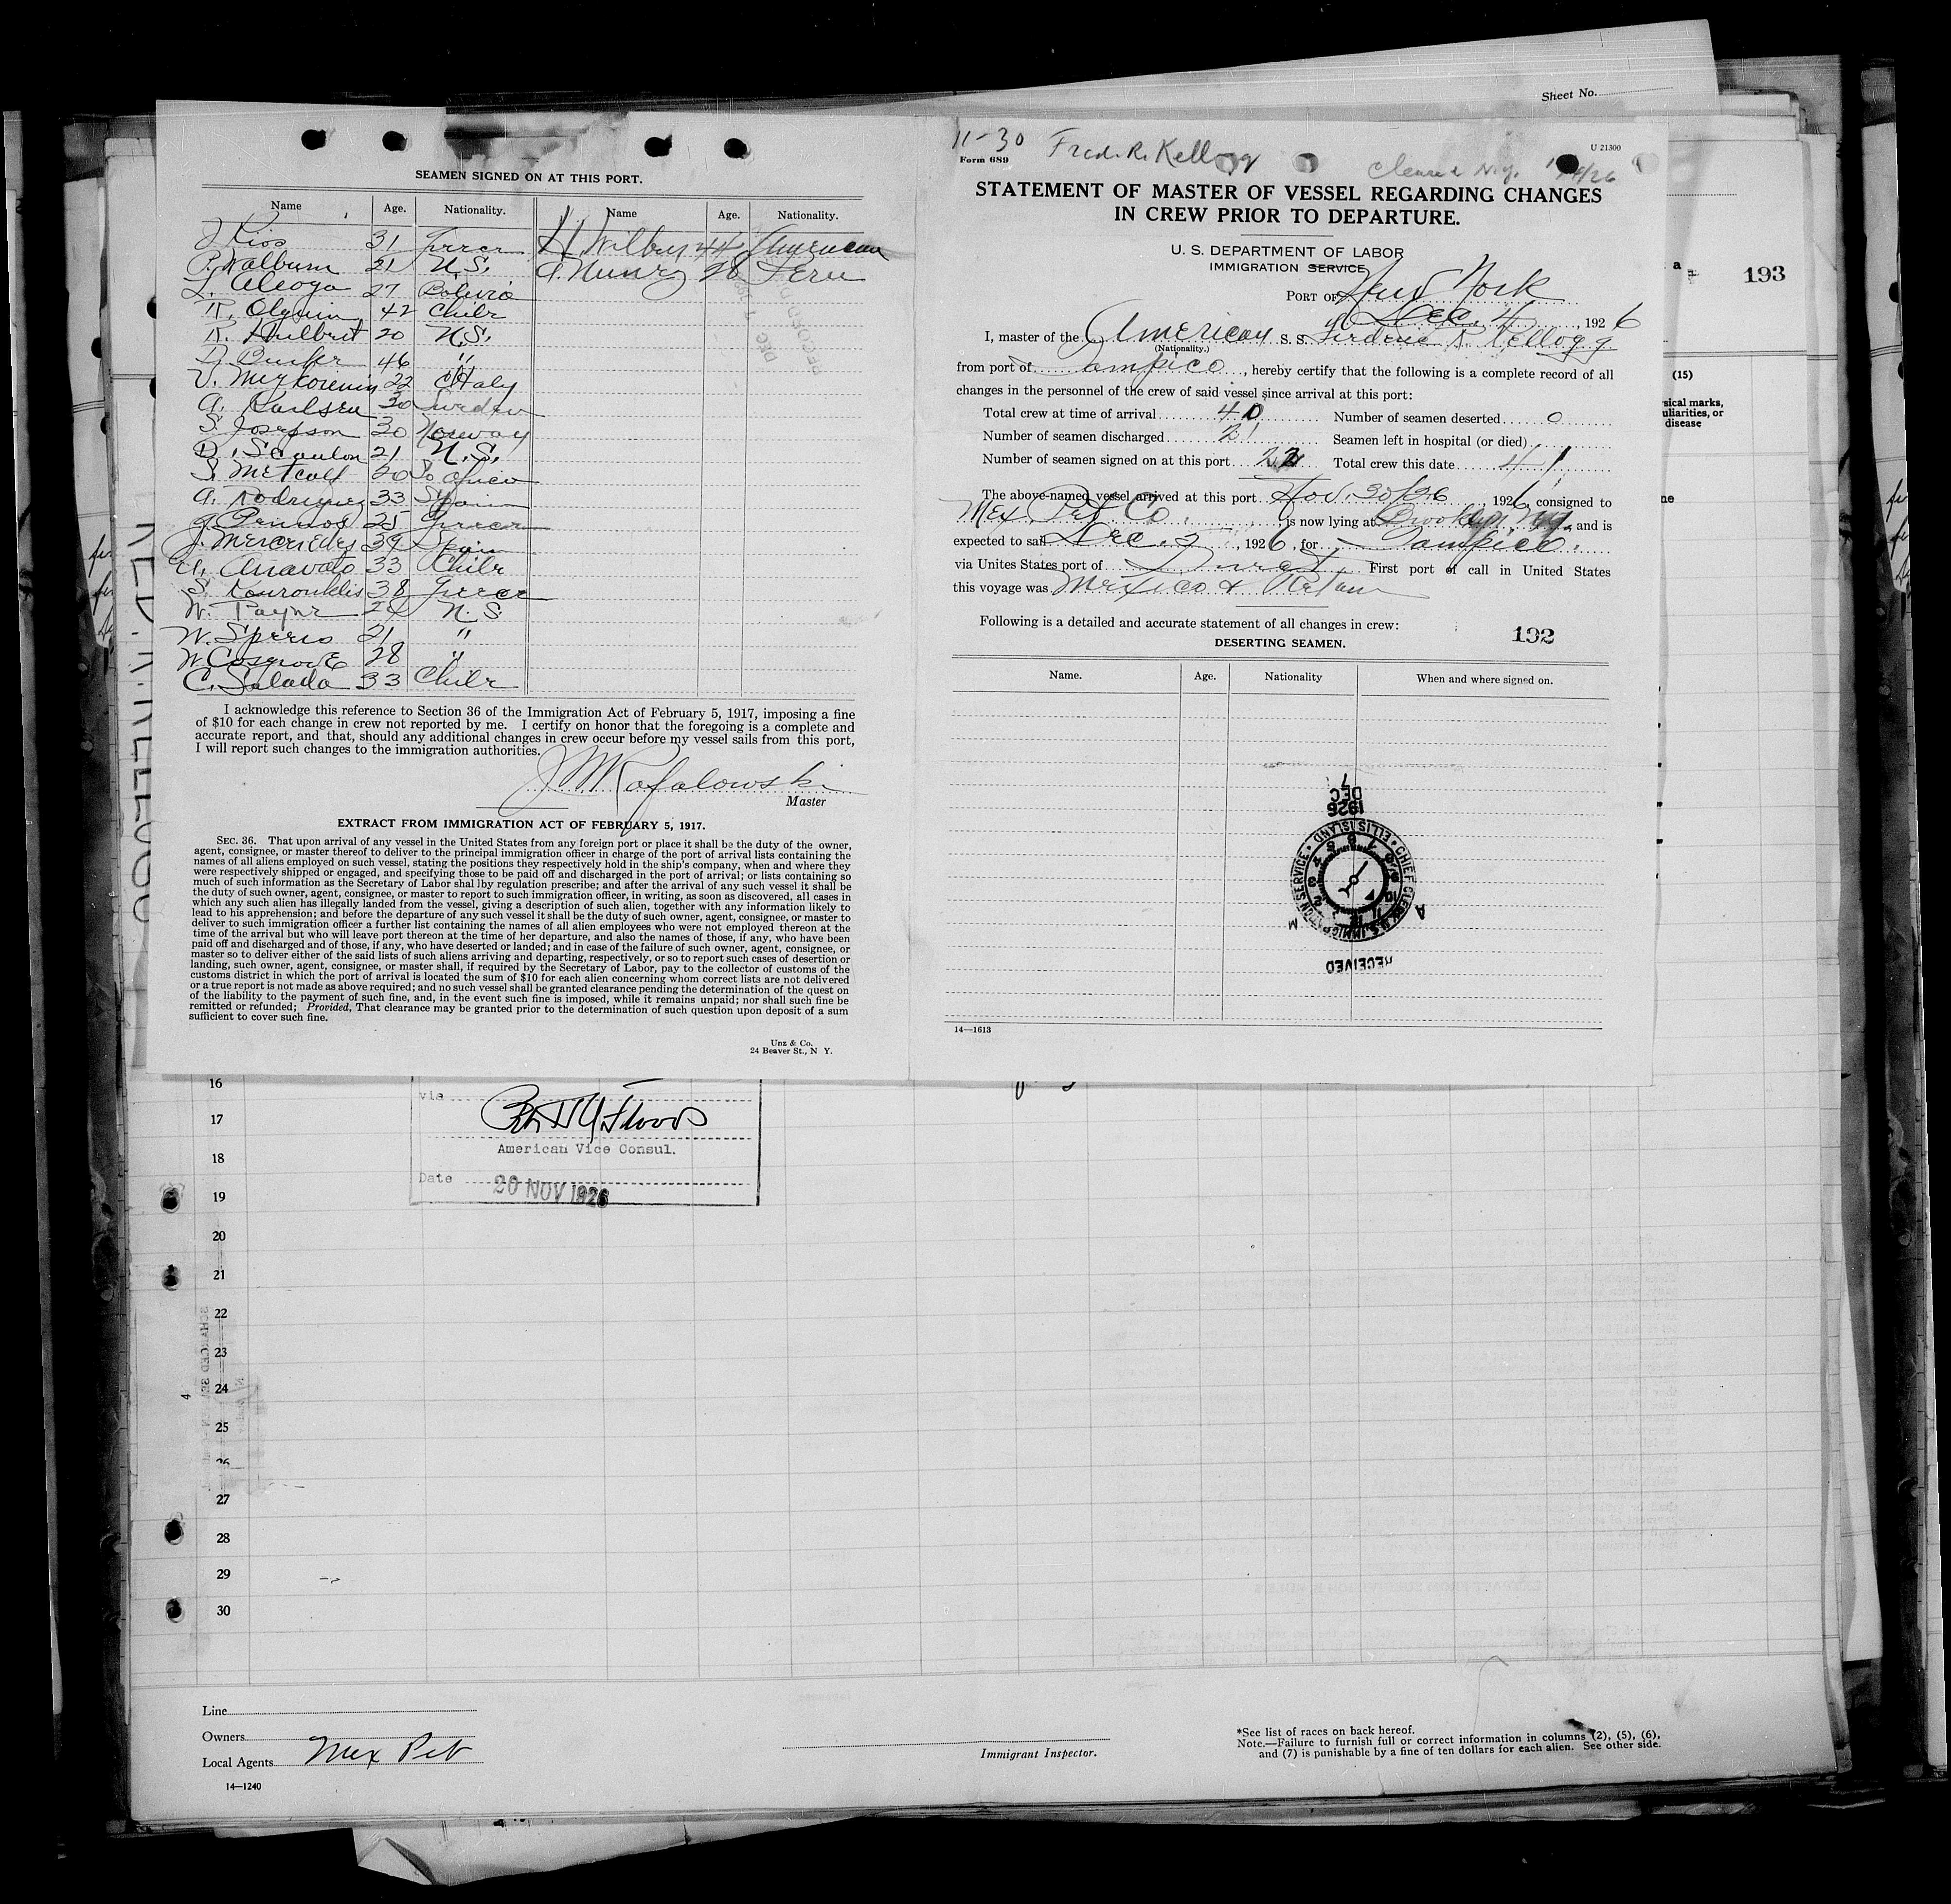 Sheet No.
SEAMEN SIGNED ON AT THIS PORT.
Name Age. Nationality. Name Age. Nationality.
J Rios 31 Greece H Wilbur 44 American
P. Walburn 21 U.S. 28 Peru
L. Aleoga 27 Bolivia
R. Olguin 42 Chile
R. Hulbert 20 U.S.
46 "
V. 22 Italy
A. Karlsen 30 Sweden
S. Josefson 30 Norway
D. Scanlon 21 U.S.
S. Metcalf 20 So Africa
A. Rodriguez 33 Spain
G. 25 Greece
J. Mercriedes 39 Spain
A. Aravalo 33 Chile
S. Kourouklis 38 Greece
W. Payne U.S.
W. Speers 21 "
W Cosgrove 28 "
C. Salada 33 Chile
I acknowledge this reference to Section 36 of the Immigration Act of February 5, 1917, imposing a fine
of $10 for each change in crew not reported by me. I certify on honor that the foregoing is a complete and
accurate report, and that, should any additional changes in crew occur before my vessel sails from this port,
I will report such changes to the immigration authorities.
J M Rafalowski
Master
EXTRACT FROM IMMIGRATION ACT OF FEBRUARY 5, 1917.
SEC. 36. That upon arrival of any vessel in the United States from any foreign port or place it shall be the duty of the owner,
agent, consignee, or master thereof to deliver to the principal immigration officer in charge of the port of arrival lists containing the
names of all aliens employed on such vessel, stating the positions they respectively hold in the ship's company, when and where they
were respectively shipped or engaged, and specifying those to be paid off and discharged in the port of arrival; or lists containing so
much of such information as the Secretary of Labor shal lby regulation prescribe; and after the arrival of any such vessel it shall be
the duty of such owner, agent, consignee, or master to report to such immigration officer, in writing, as soon as discovered, all cases in
which any such alien has illegally landed from the vessel, giving a description of such alien, together with any information likely to
lead to his apprehension; and before the departure of any such vessel it shall be the duty of such owner, agent, consignee, or master to
deliver to such immigration officer a further list containing the names of all alien employees who were not employed thereon at the
time of the arrival but who will leave port thereon at the time of her departure, and also the names of those, if any, who have been
paid off and discharged and of those, if any, who have deserted or landed; and in case of the failure of such owner, agent, consignee, or
master so to deliver either of the said lists of such aliens arriving and departing, respectively, or so to report such cases of desertion or
landing, such owner, agent, consignee, or master shall, if required by the Secretary of Labor, pay to the collector of customs of the
customs district in which the port of arrival is located the sum of $10 for each alien concerning whom correct lists are not delivered
or a true report is not made as above required; and no such vessel shall be granted clearance pending the determination of the quest on
of the liability to the payment of such fine, and, in the event such fine is imposed, while it remains unpaid; nor shall such fine be
remitted or refunded; Provided, That clearance may be granted prior to the determination of such question upon deposit of a sum
sufficient to cover such fine.
Unz & Co.
24 Beaver St., N Y.
11-30 Fred. R. Kellogg
Form 689
U 21300
Cleared N.Y.
STATEMENT OF MASTER OF VESSEL REGARDING CHANGES
IN CREW PRIOR TO DEPARTURE.
U. S. DEPARTMENT OF LABOR
IMMIGRATION SERVICE
PORT OF New York
Dec. 4, 1926
I, master of the American S. S. Frederic R Kellogg
(Nationality.)
from port of Tampico, hereby certify that the following is a complete record of all
changes in the personnel of the crew of said vessel since arrival at this port:
Total crew at time of arrival 40 Number of seamen deserted 0
Number of seamen discharged 21 Seamen left in hospital (or died)
Number of seamen signed on at this port 22 Total crew this date 41
The above-named vessel arrived at this port Nov. 30/26, 1926, consigned to
Mex. Pet. Co., is now lying at Brooklyn, N.Y., and is
expected to sail Dec. 2, 1926, for Tampico.
via Unites States port of Direct. First port of call in United States
this voyage was Mexico & Return
Following is a detailed and accurate statement of all changes in crew:
192
DESERTING SEAMEN.
Name. Age. Nationality When and where signed on.
DEC 7
1926
CHIEF CLERK U.S. IMMIGRATION SERVICE • ELLIS ISLAND •
RECEIVED
14—1613
193
(15)
16
17
18
19
20
21
22
23
24
25
26
27
28
29
30
via
American Vice Consul.
Date 20 NOV 1926
Line
Owners
Local Agents Mex Pet
14—1240
Immigrant Inspector.
*See list of races on back hereof.
Note.—Failure to furnish full or correct information in columns (2), (5), (6),
and (7) is punishable by a fine of ten dollars for each alien. See other side.